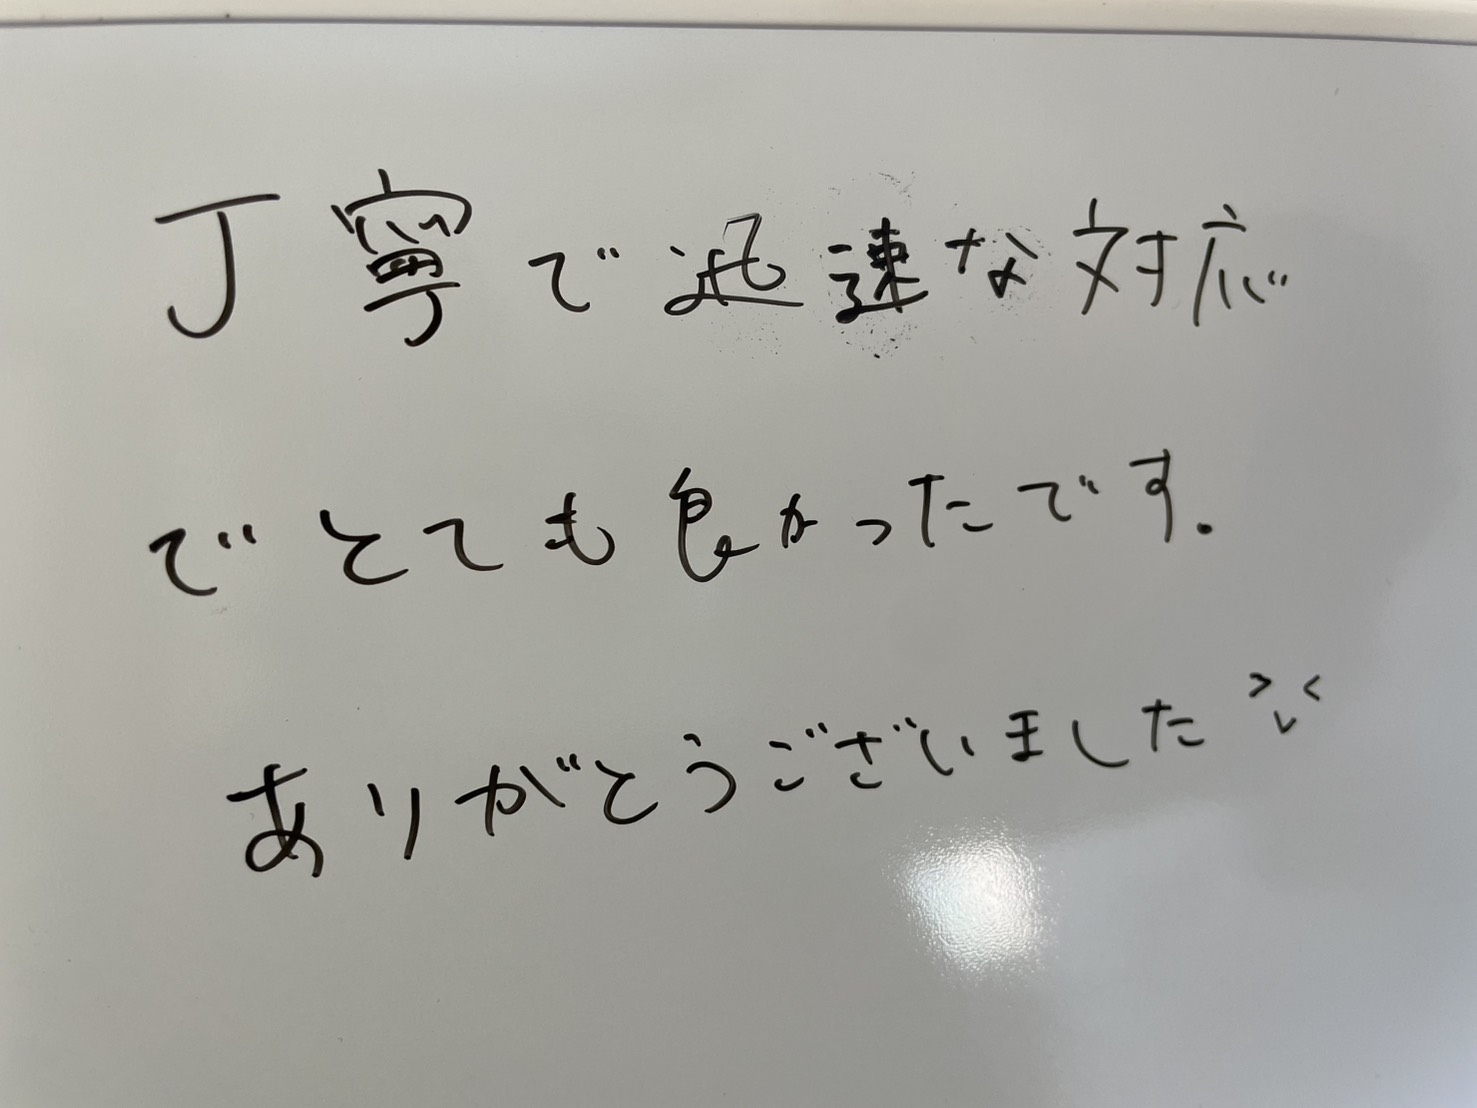 丁寧で迅速な対応
でとても良かったです.
ありがとうございました